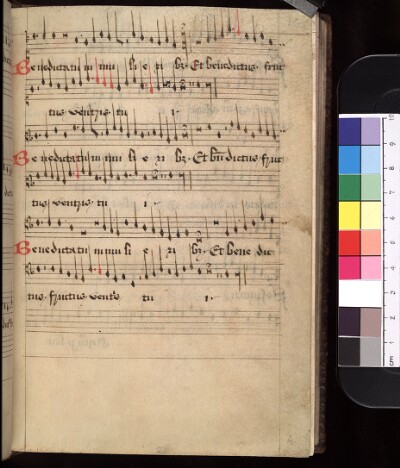 Benedicta tu in mu li e ri bz. Et benedictus. fruc
tus ventris tu i.
Benedicta tu in mu li e ri bz. Et bn dictus fruc
tus ventris tu i.
Benedicta tu in mu li e ri bz. Et bene dic
tus fructus ventris tu i.